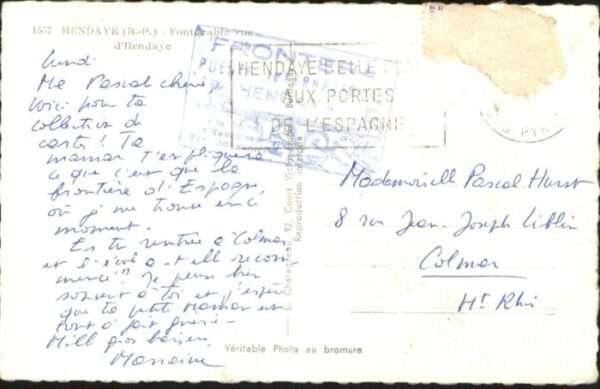 1557 HENDAYE (B.-P.) - Fontarabie vue
d'Hendaye
FRONTE
HENDAYE BELLE
AUX PORTES
DE L'ESPAGNE
Lundi
Ma Pascal chérie
Voici pour ta
collection de
cartes! Ta
maman t'expliquera
ce que c'est que la
frontière d'Espagne,
où je me trouve en ce
moment.
Es tu rentrée à Colmar
et l'école a-t-elle recom-
mencé? Je pense bien
souvent à toi et j'espère
que ta petite Maman est
tout à fait guérie -
Mille gros baisers
Marraine
Mademoiselle Pascal Hurst
8 rue Jean-Joseph
Colmar
Ht Rhin
92, Cours
Reproduction interdite
Véritable Photo au bromure